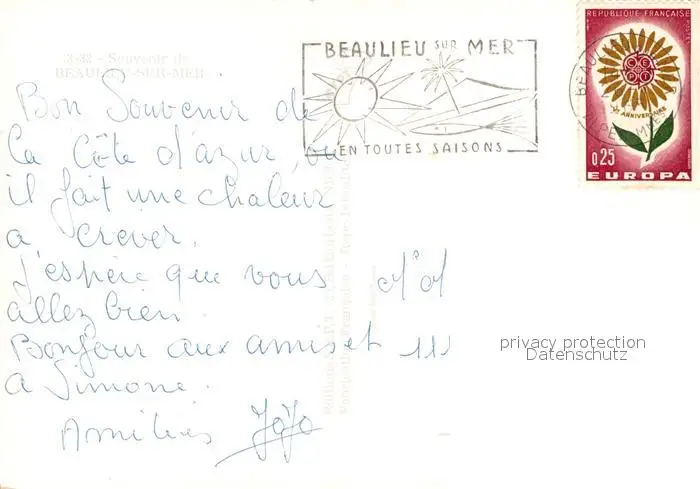 3-32 - Souvenir de
BEAULIEU-SUR-MER
Bon Souvenir de
la Côte d'azur, ou
il fait une chaleur
a crever.
j'espère que vous
allez bien.
Bonjour aux amis et
a Simone.
Amitiés JoJo
BEAULIEU SUR MER
EN TOUTES SAISONS
REPUBLIQUE FRANÇAISE
POSTES
CEPT
5e ANNIVERSAIRE
0,25
EUROPA
privacy protection
Datenschutz